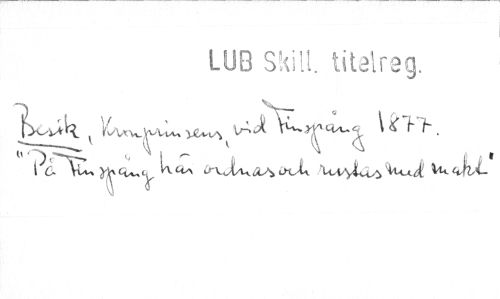 LUB Skill. titelreg.
Besök, Kronprinsens, vid Finspång 1877.
"På Finspång här ordnas och rustas med makt"